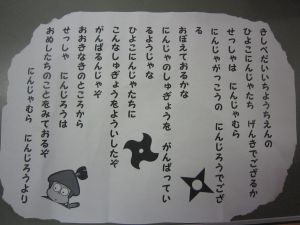 きしべだいいちようちえんの
ひよこにんじゃたち げんきでござるか
せっしゃは にんじゃむら
にんじゃがっこうの にんじろうでござ
る
おぼえておるかな
にんじゃのしゅぎょうを がんばってい
るようじゃな
ひよこにんじゃたちに
こんなしゅぎょうをよういしたぞ
がんばるんじゃぞ
おおきなきのところから
せっしゃ にんじろうは
おぬしたちのことをみておるぞ
にんじゃむら にんじろうより